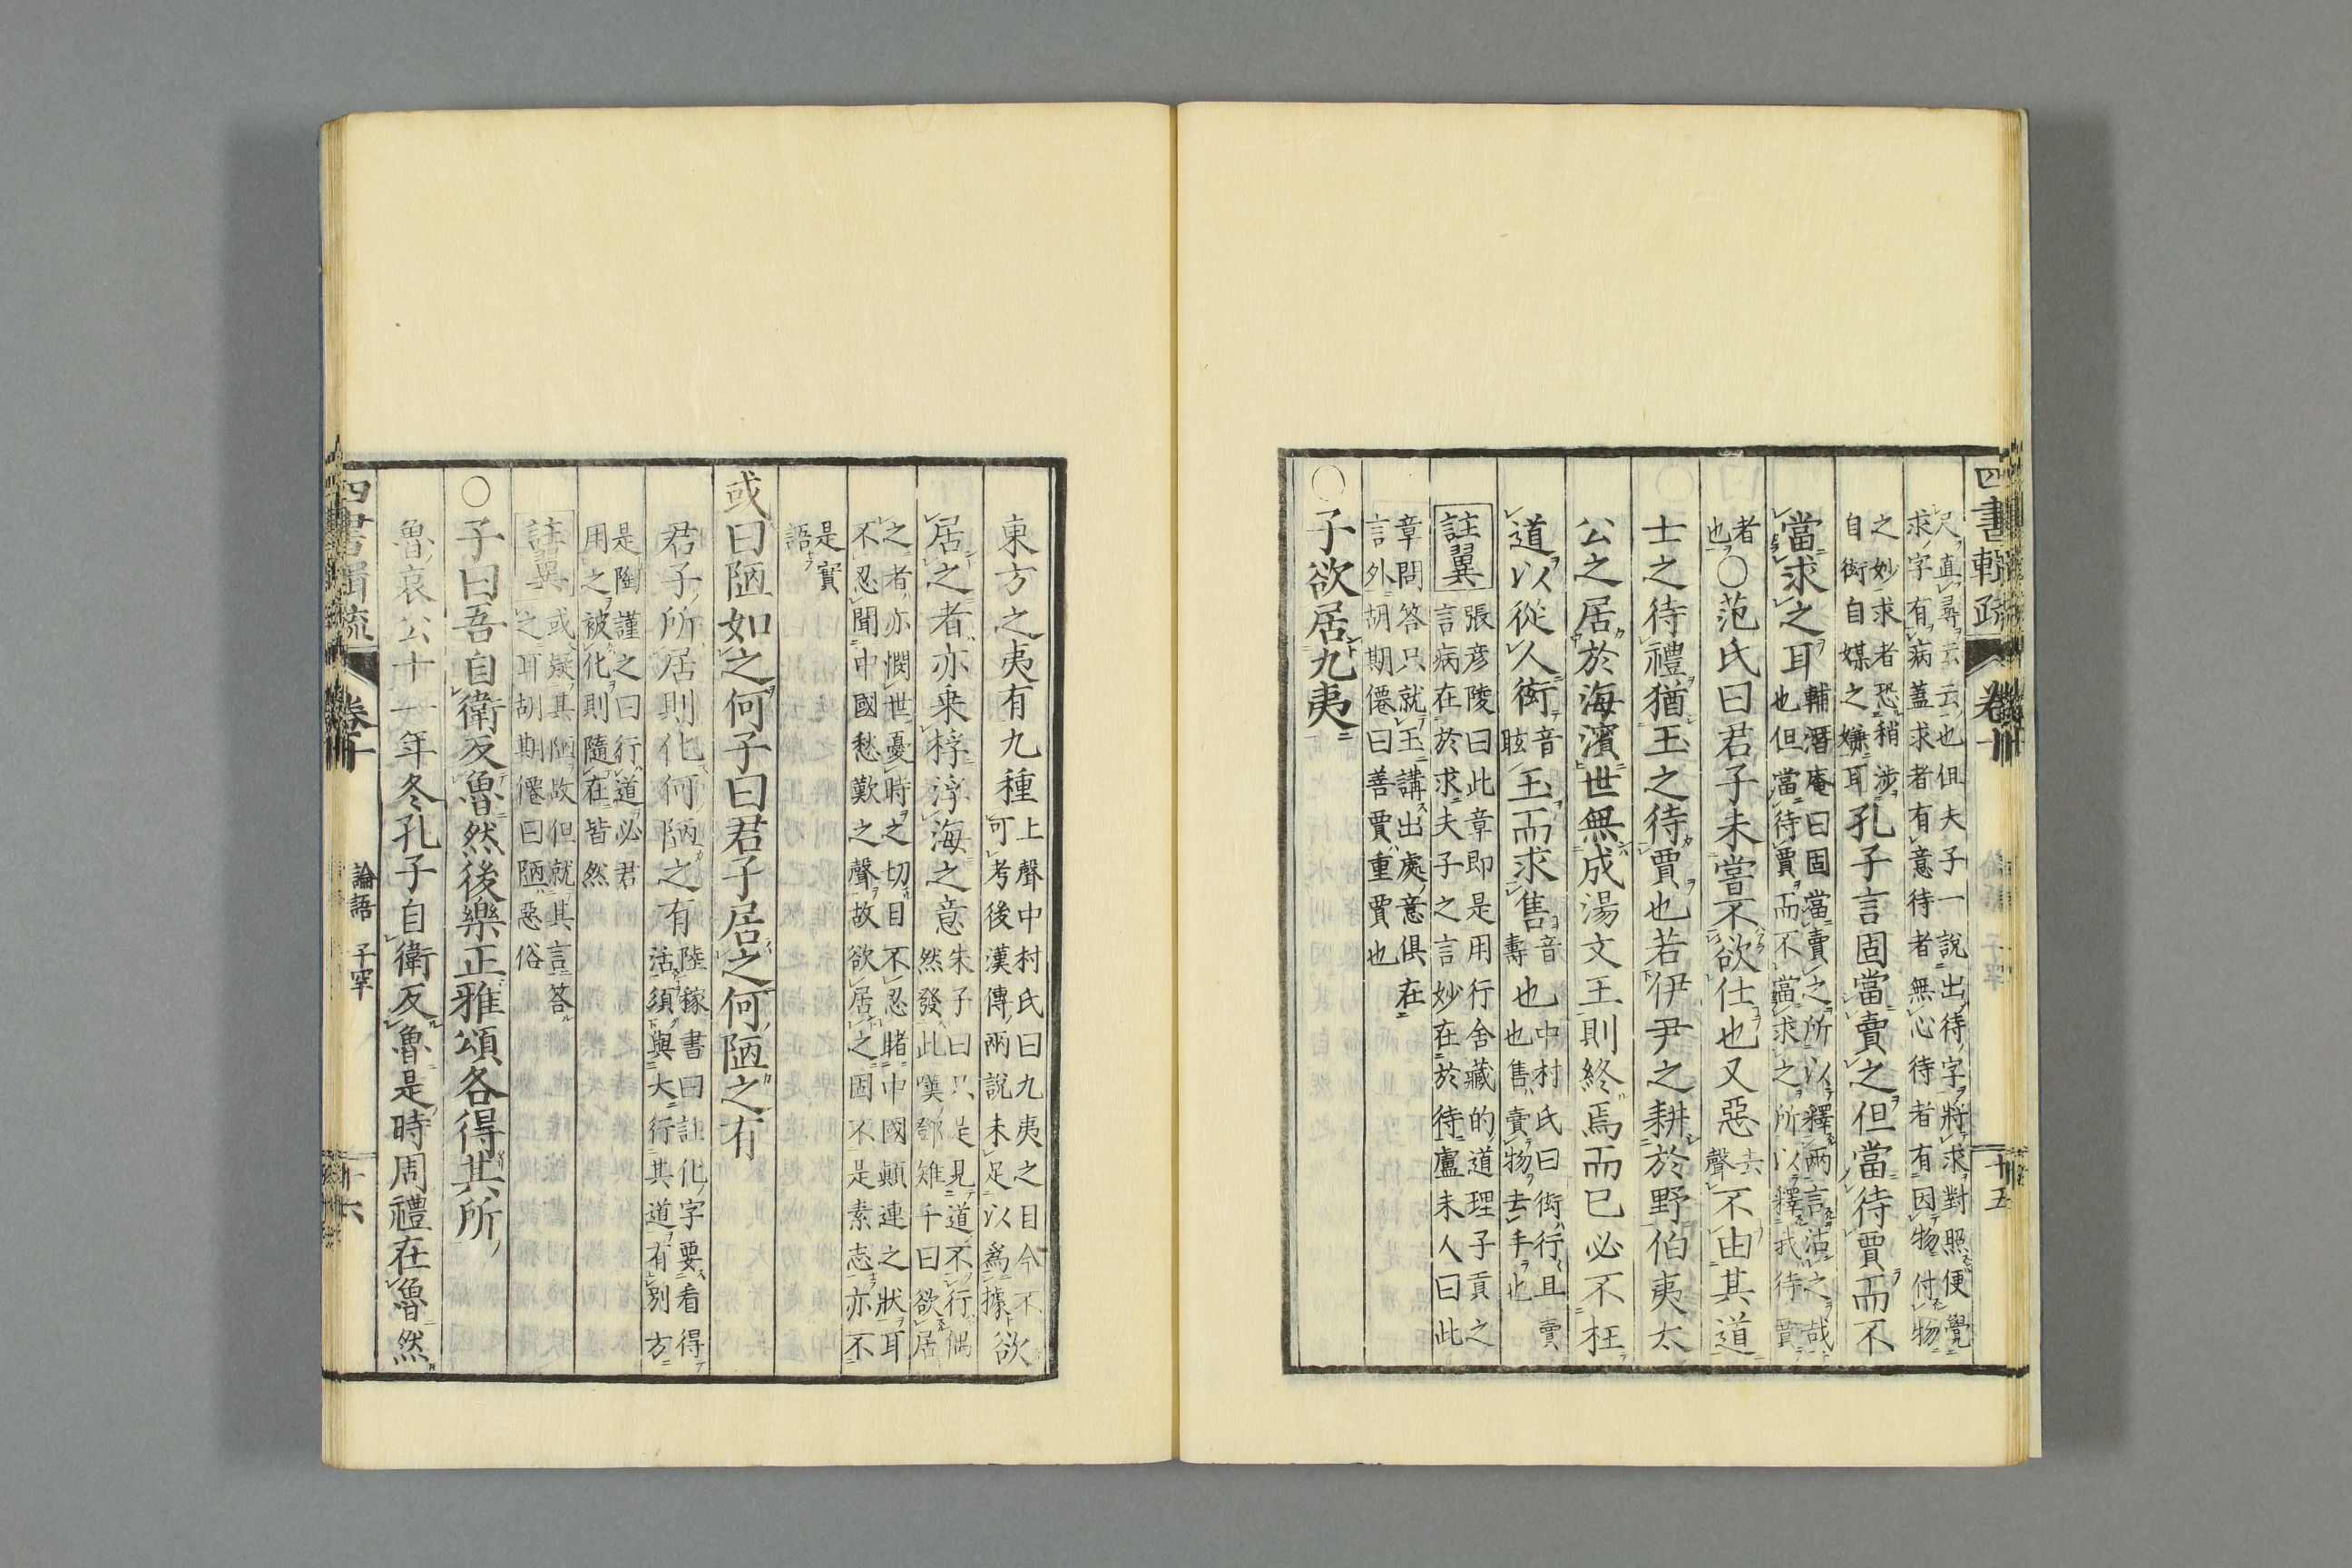 四書輯疏 卷十 十五
尺直尋云云也但夫子一說出待字將求對照便覺
求字有病蓋求者有意待者無心待者有因物付物
之妙求者恐稍涉
自衒自媒之嫌耳
孔子言固當賣之但當待賈而不
當求之耳
輔潛庵曰固當賣之所以釋兩言沽之哉
也但當待賈而不當求之所以釋我待賈
者
也
○范氏曰君子未嘗不欲仕也又惡
去
聲
不由其道
士之待禮猶玉之待賈也若伊尹之耕於野伯夷太
公之居於海濱世無成湯文王則終焉而已必不枉
道以從人衒
音
眩
玉而求售
音
壽
也
中村氏曰衒行且賣
也售賣物去手也
註翼
張彥陵曰此章即是用行舍藏的道理子貢之
言病在於求夫子之言妙在於待盧未人曰此
章問答只就玉講出處意俱在
言外胡期僊曰善賈重賈也
○子欲居九夷
東方之夷有九種
上聲中村氏曰九夷之目今不
可考後漢傳兩說未足以爲據
欲
居之者亦乘桴浮海之意
朱子曰只是見道不行偶
然發此嘆鄧雉千曰欲居
之者亦憫世憂時之切目不忍睹中國顚連之狀耳
不忍聞中國愁歎之聲故欲居之固不是素志亦不
是實
語
或曰陋如之何子曰君子居之何陋之有
君子所居則化何陋之有
陸稼書曰註化字要看得
活須與大行其道有別方
是陶謹之曰行道必君
用之被化則隨在皆然
註翼
或疑其陋故但就其言答
之耳胡期僊曰陋惡俗
○子曰吾自衛反魯然後樂正雅頌各得其所
魯哀公十一年冬孔子自衛反魯是時周禮在魯然
四書輯疏 卷十 論語 子罕 十六